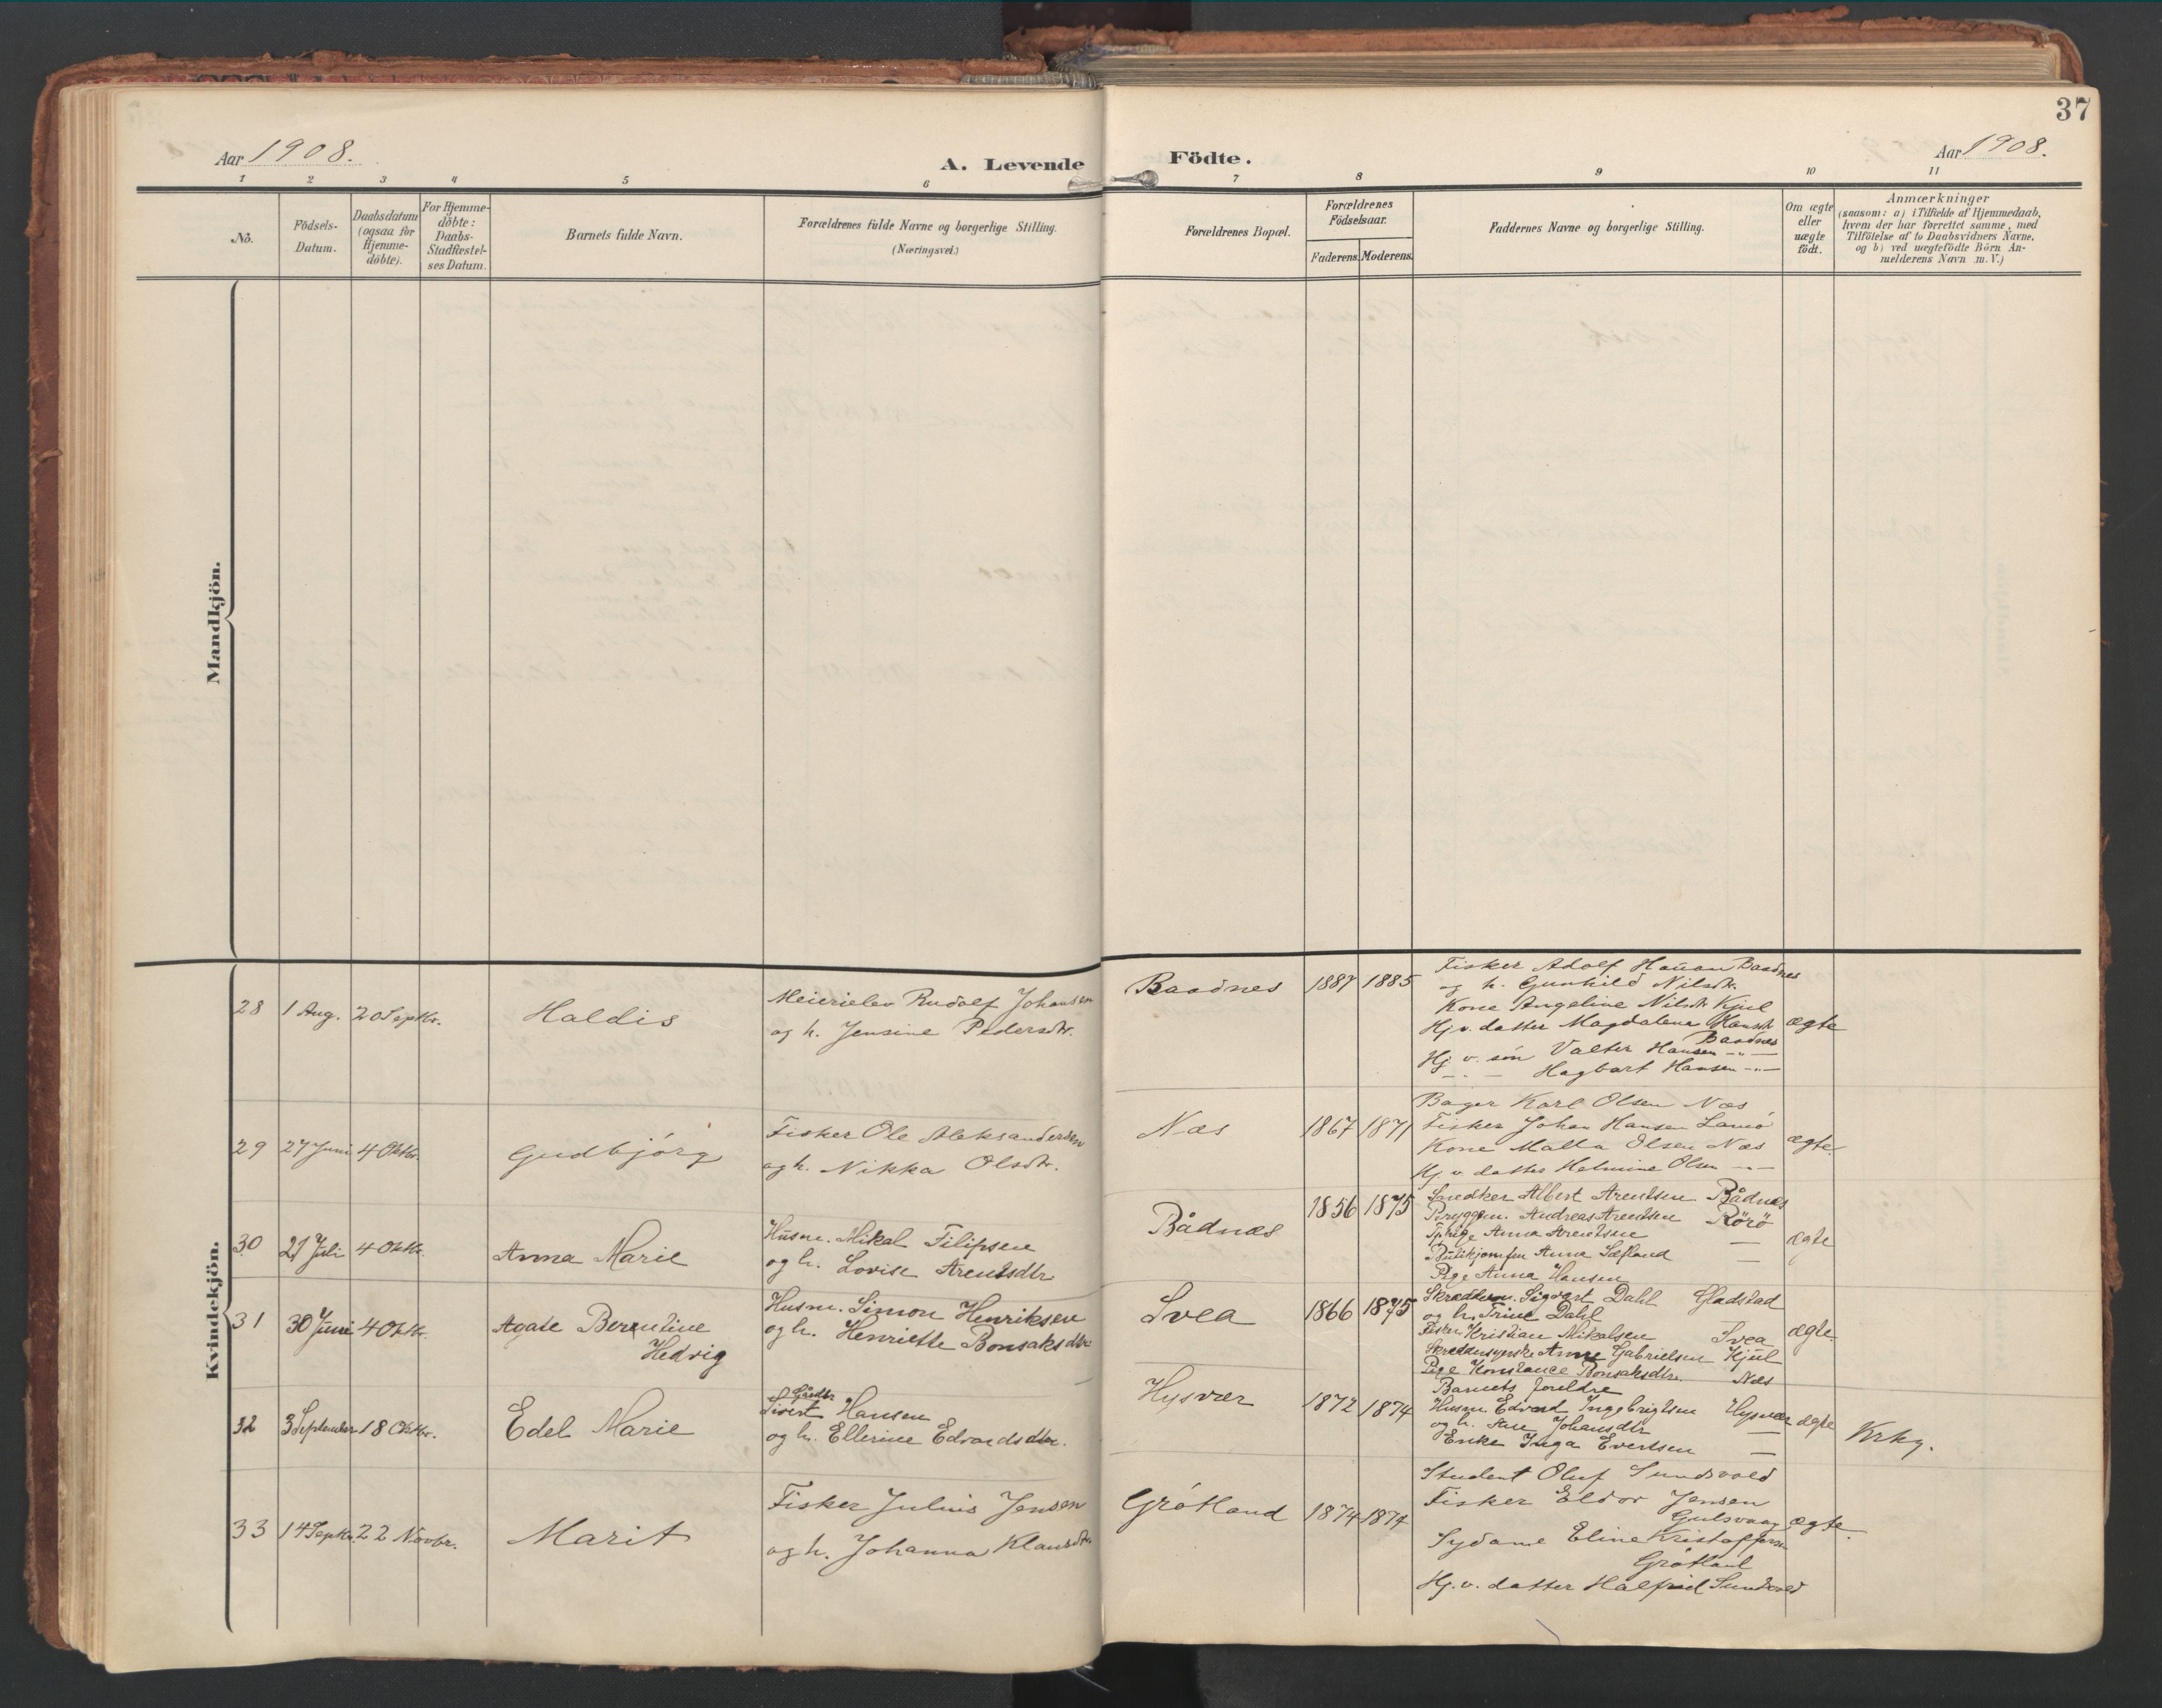 37
Aar 1908.
A. Levende Födte.
Aar 1908.
1 2 3 4 5 6 7 8 9 10 11
No.
Födsels-
Datum.
Daabsdatum
(ogsaa for
Hjemme-
döbte).
For Hjemme-
döbte:
Daabs-
Stadfæstel-
ses Datum.
Barnets fulde Navn.
Forældrenes fulde Navne og borgerlige Stilling.
(Næringsvei.)
Forældrenes Bopæl.
Forældrenes
Födselsaar.
Faderens.
Moderens.
Faddernes Navne og borgerlige Stilling.
Om ægte
eller
uægte
födt.
Anmærkninger
(saasom: a) i Tilfælde af Hjemmedaab,
hvem der har forrettet samme, med
Tilföielse af to Daabsvidners Navne,
og b) ved uægtefödte Börn An-
melderens Navn m.V.)
Mandkjön.
Kvindekjön.
28
1 Aug.
20 Septbr.
Haldis
Meierielev Rudolf Johansen
og h. Jensine Pedersdtr.
Baadnes
1887
1885
Fisker Adolf Hansen Baadnes
og h. Gunhild Nilsdtr.
Kone Angeline Nilsdtr Kjul
Hj. v. datter Magdalena Hansdtr
Baadnes
Hj. v. sön Valter Hansen -"-
Hagbart Hansen -"-
ægte
29
27 Juni
4 Oktbr.
Gudbjörg
Fisker Ole Aleksandersen
og h. Nikka Olsdtr.
Næs
1867
1871
Bager Karl Olsen Næs
Fisker Johan Hansen
Kone Malla Olsen Næs
Hj. v. datter Helmine Olsen -"-
ægte.
30
21 Juli
4 Oktbr.
Anna Marie
Husm. Mikal Filipsen
og h. Lovise Arentsdtr
Bådnæs
1856
1875
Snedker Albert Arentsen Bådnæs
Bryggem. Andreas Arentsen Rörö
Anna Arentsen —
Butikjomfru Anna Sæfland —
Pige Anna Hansen
ægte
31
30 Juni
4 Oktbr.
Agate Berentine
Hedvig
Husm. Simon Henriksen
og h. Henriette Bonsaksdtr
Svea
1866
1875
Skrædderm. Sigvart Dahl Gladstad
og h. Trine Dahl
Fisker Kristian Mikalsen Svea
Skreddersyerske Anne Gabrielsen Kjul
Pige Konstance Bonsaksdtr. Næs
ægte
32
3 September
18 Oktbr.
Edel Marie
Gårdbr
Sivert Hansen
og h. Ellerine Edvardsdtr.
Hysvær
1872
1874
Barnets foreldre
Husm. Edvard Ingebrigtsen Hysvær
og h. Ane Johansdtr —
Enke Inga Evertsen —
ægte
Krkg.
33
14 Septbr.
22 Novbr.
Marit
Fisker Julius Jensen
og h. Johanna Klausdtr.
Grötland
1874
1874
Student Oluf Sundsvold
Fisker Eldor Jensen
Gulsvaag
Sydame Eline Kristoffersen
Grötland
Hj. v. datter Halfrid Sundsvold
ægte.